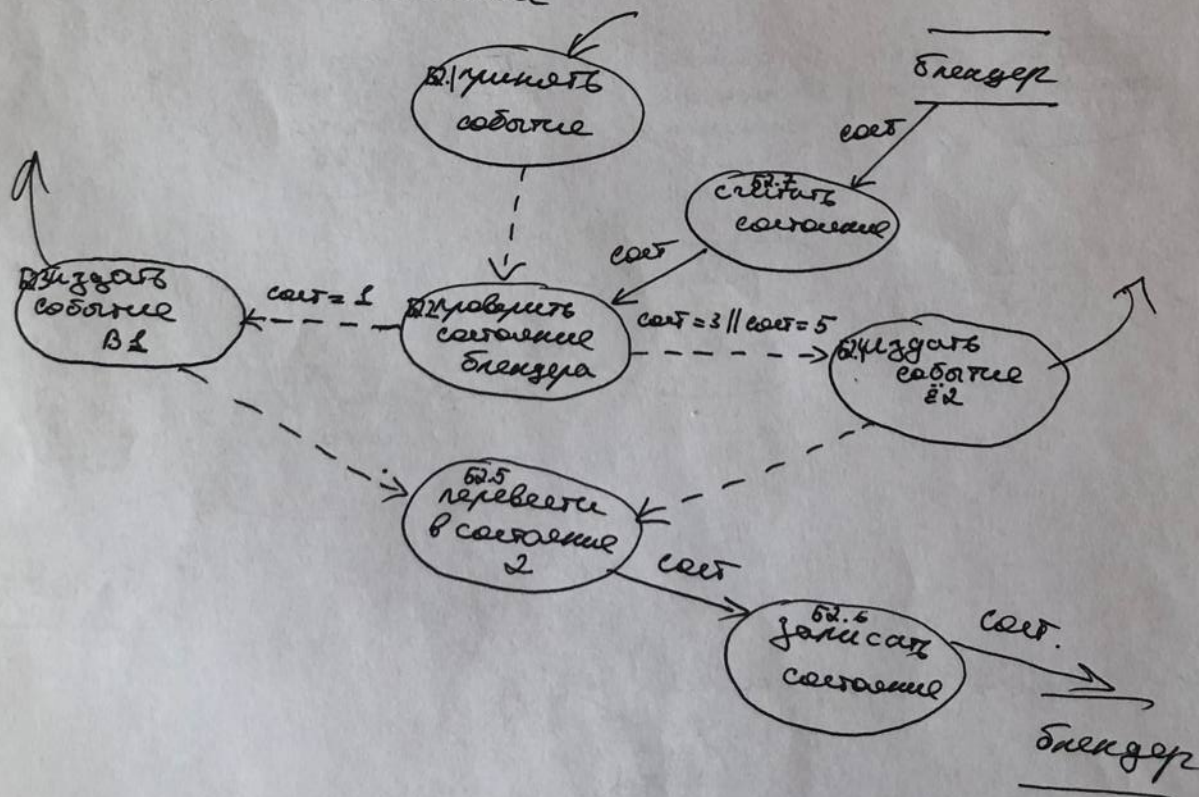 Б2.1 принять
событие
блендер
сост
Б2.7
считать
состояние
сост
Б2.3 издать
событие
В1
сост = 1
Б2.2 проверить
состояние
блендера
сост = 3 || сост = 5
Б2.4 издать
событие
Ё2
Б2.5
перевести
в состояние
2
сост
Б2.6
записать
состояние
сост.
блендер